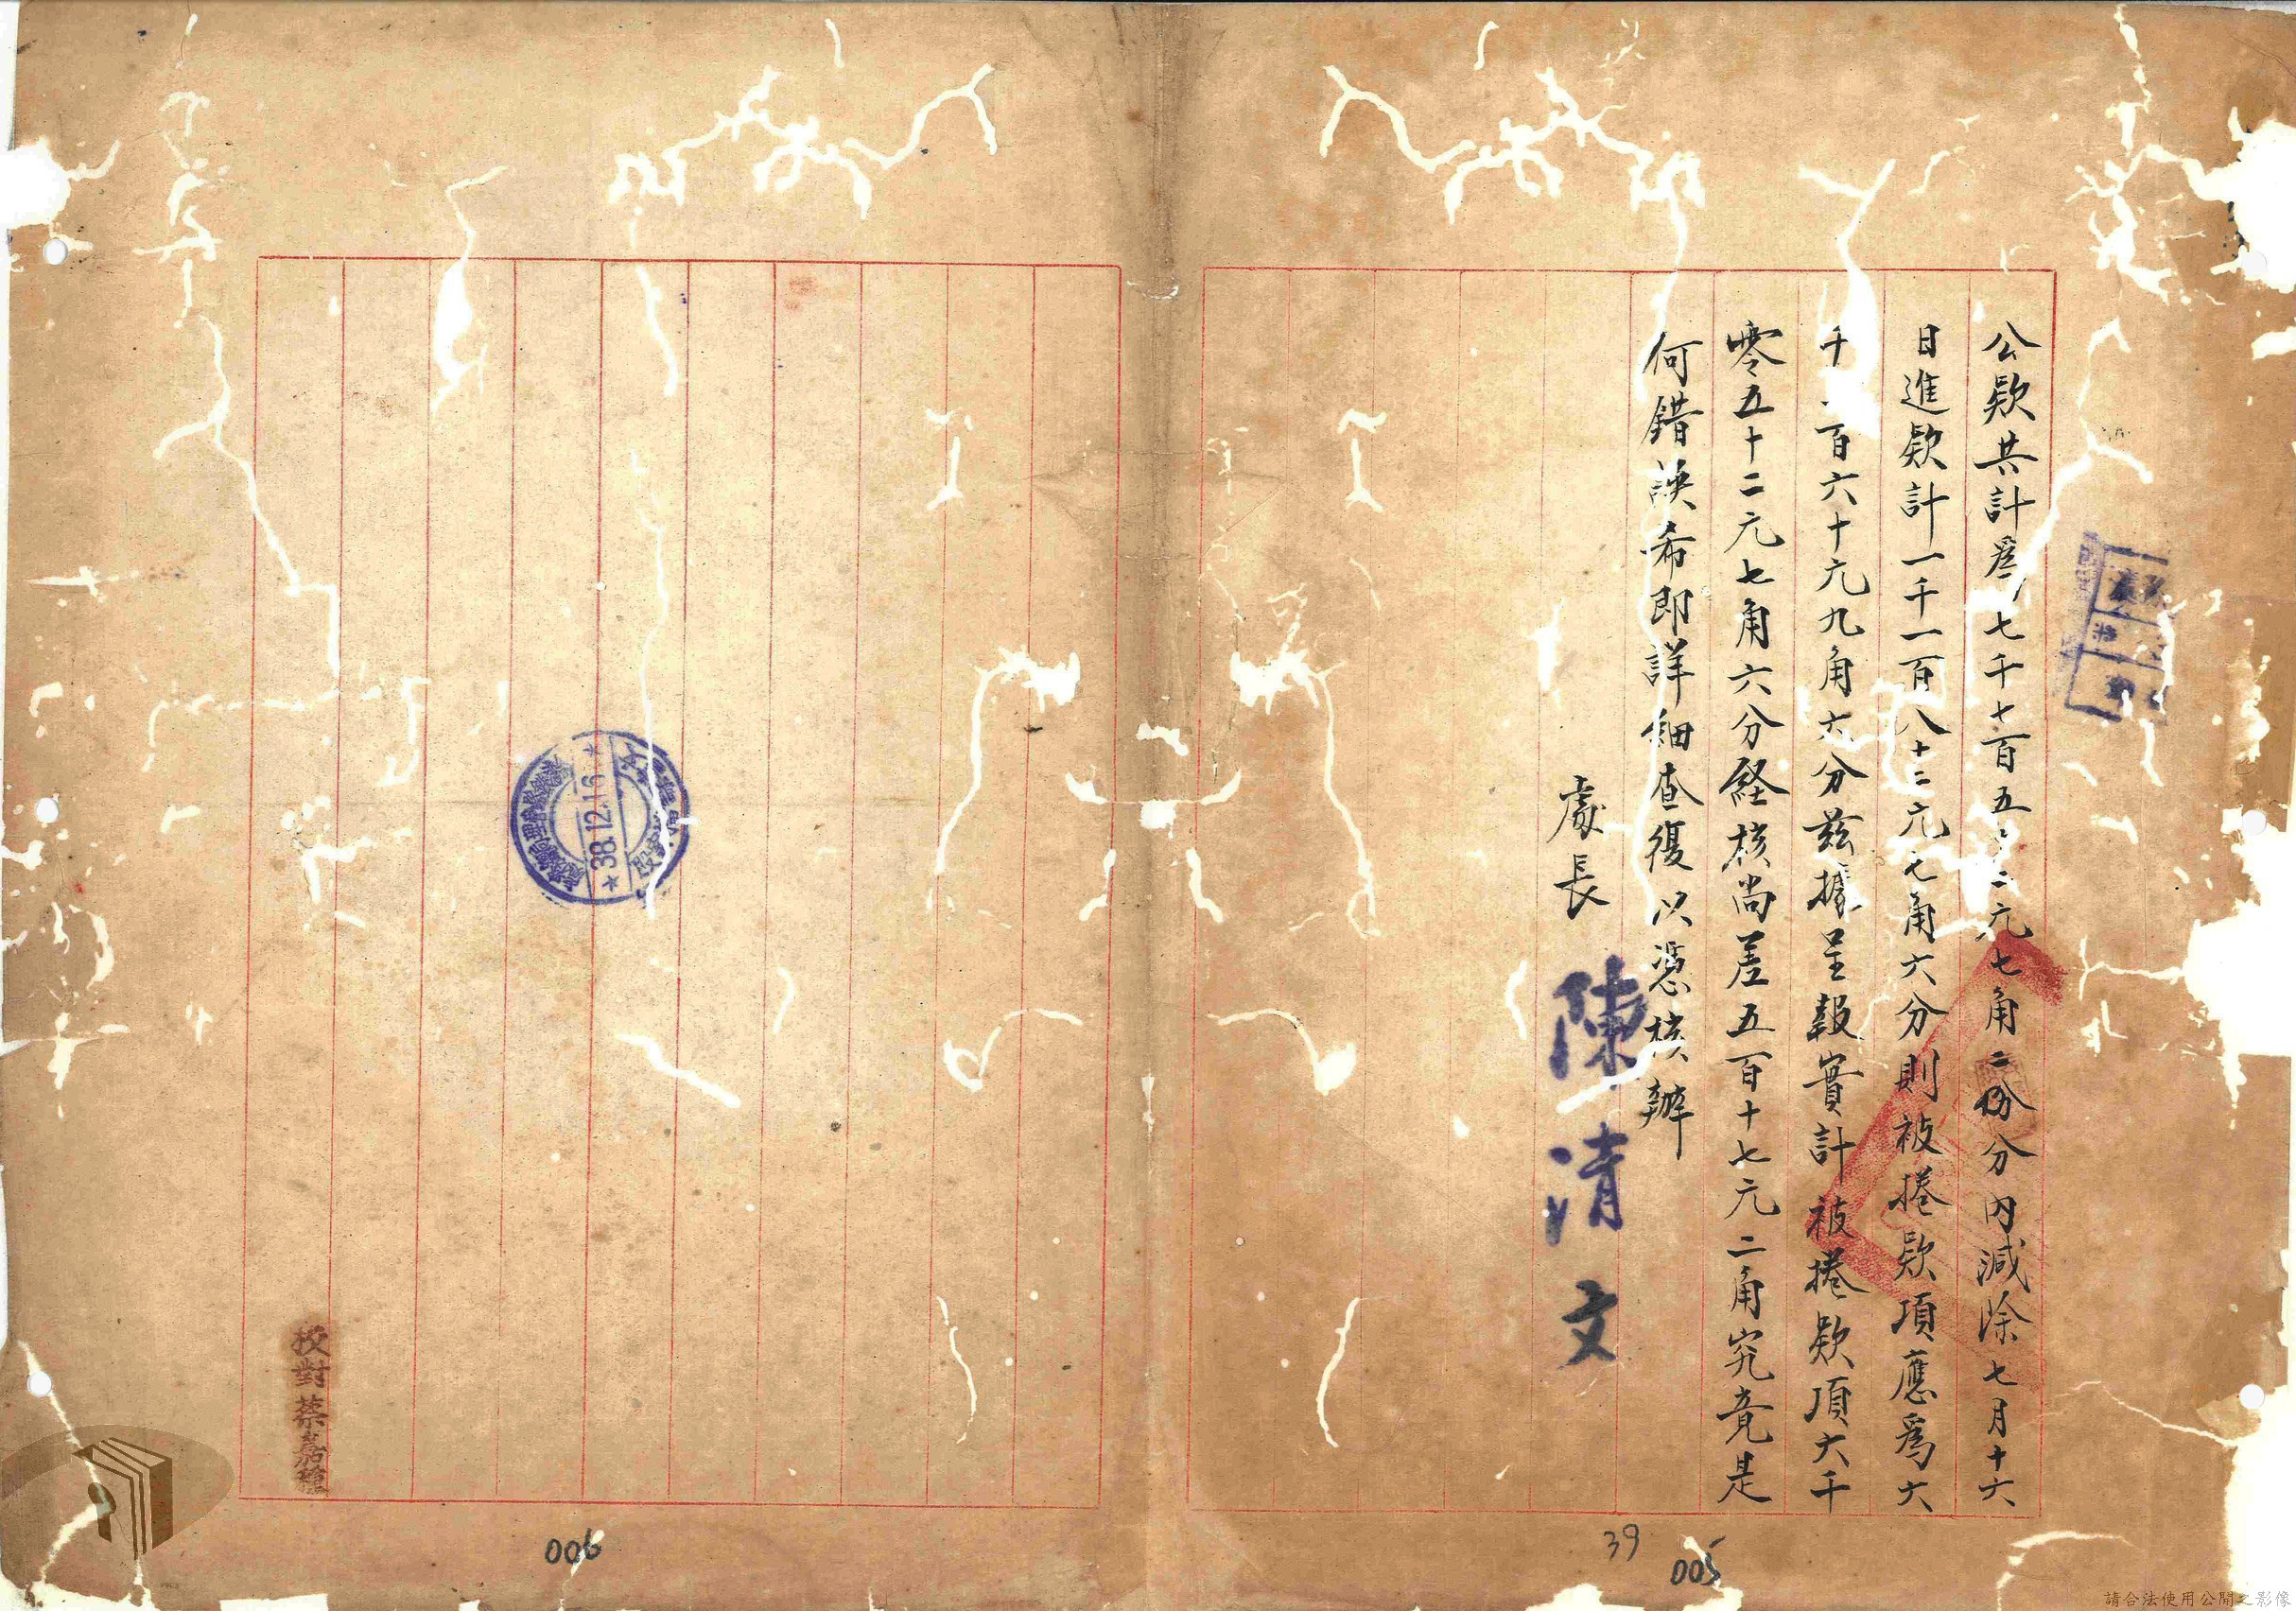 公欵共計為七千七百五　二元七角二分分內減除七月十六
日進欵計一千一百八十二元七角六分則被捲欵項應為六
千　百六十九元九角六分茲據呈報實計被捲欵項六千
零五十二元七角六分経核尚差五百十七元二角究竟是
何錯誤希即詳細查復以憑核辦
處長 陳清文
38.12.16
校對 蔡嘉
39
005
006
請合法使用公開之影像